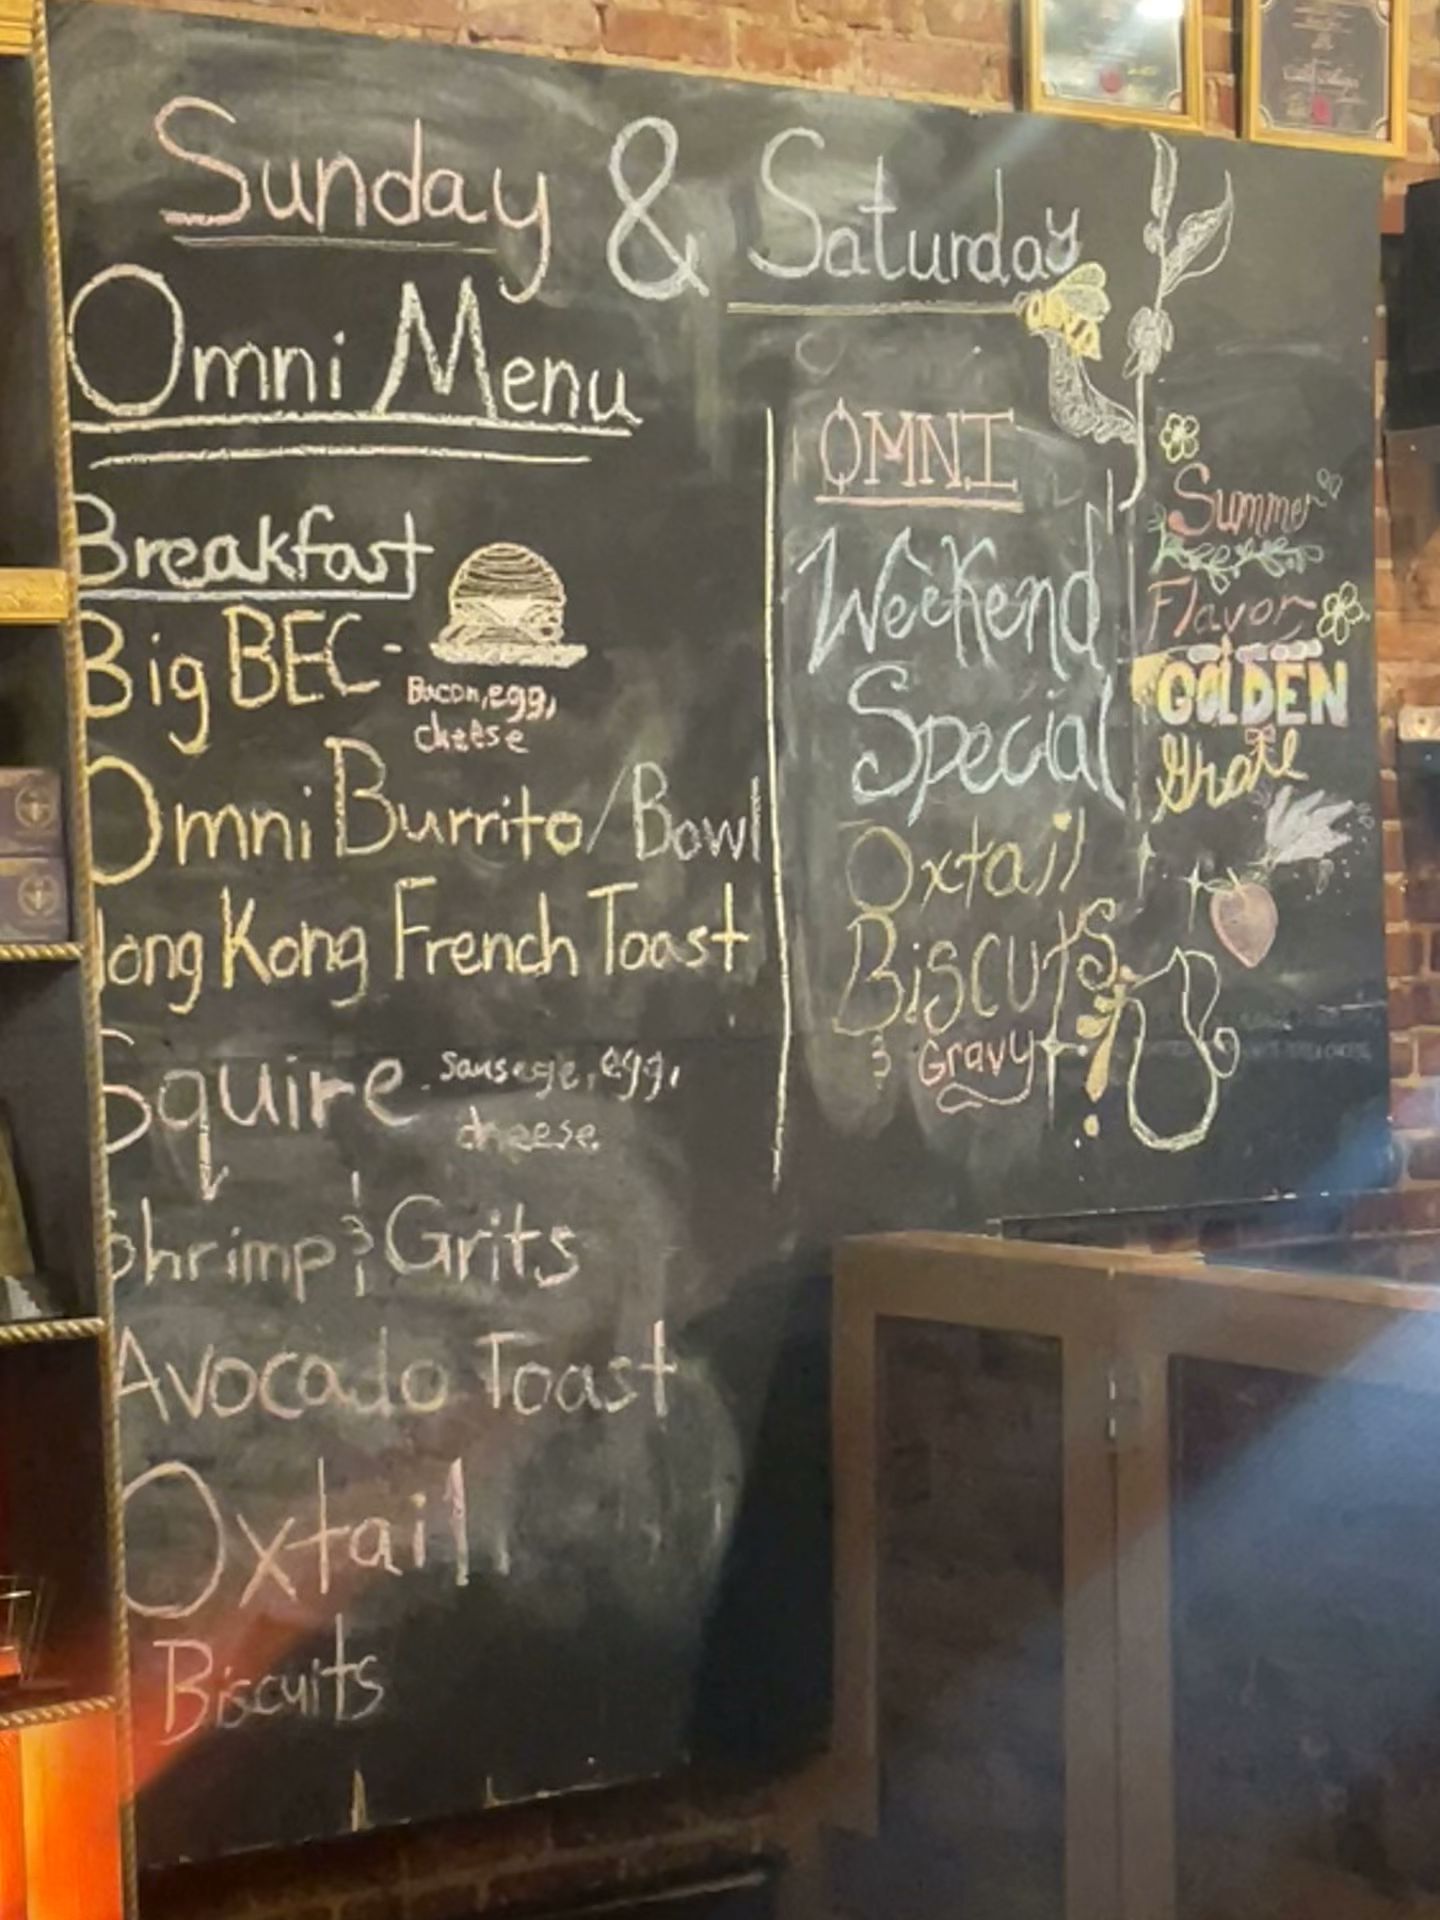 Sunday & Saturday
Omni Menu
Breakfast
Big BEC -
Bacon, egg,
cheese
Omni Burrito/Bowl
Hong Kong French Toast
Squire - Sausege, egg,
cheese
Shrimp & Grits
Avocado Toast
Oxtail
Biscuits
OMNI
Weekend
Special
Oxtail
Biscuts
& Gravy
Summer
Flavor
GOLDEN